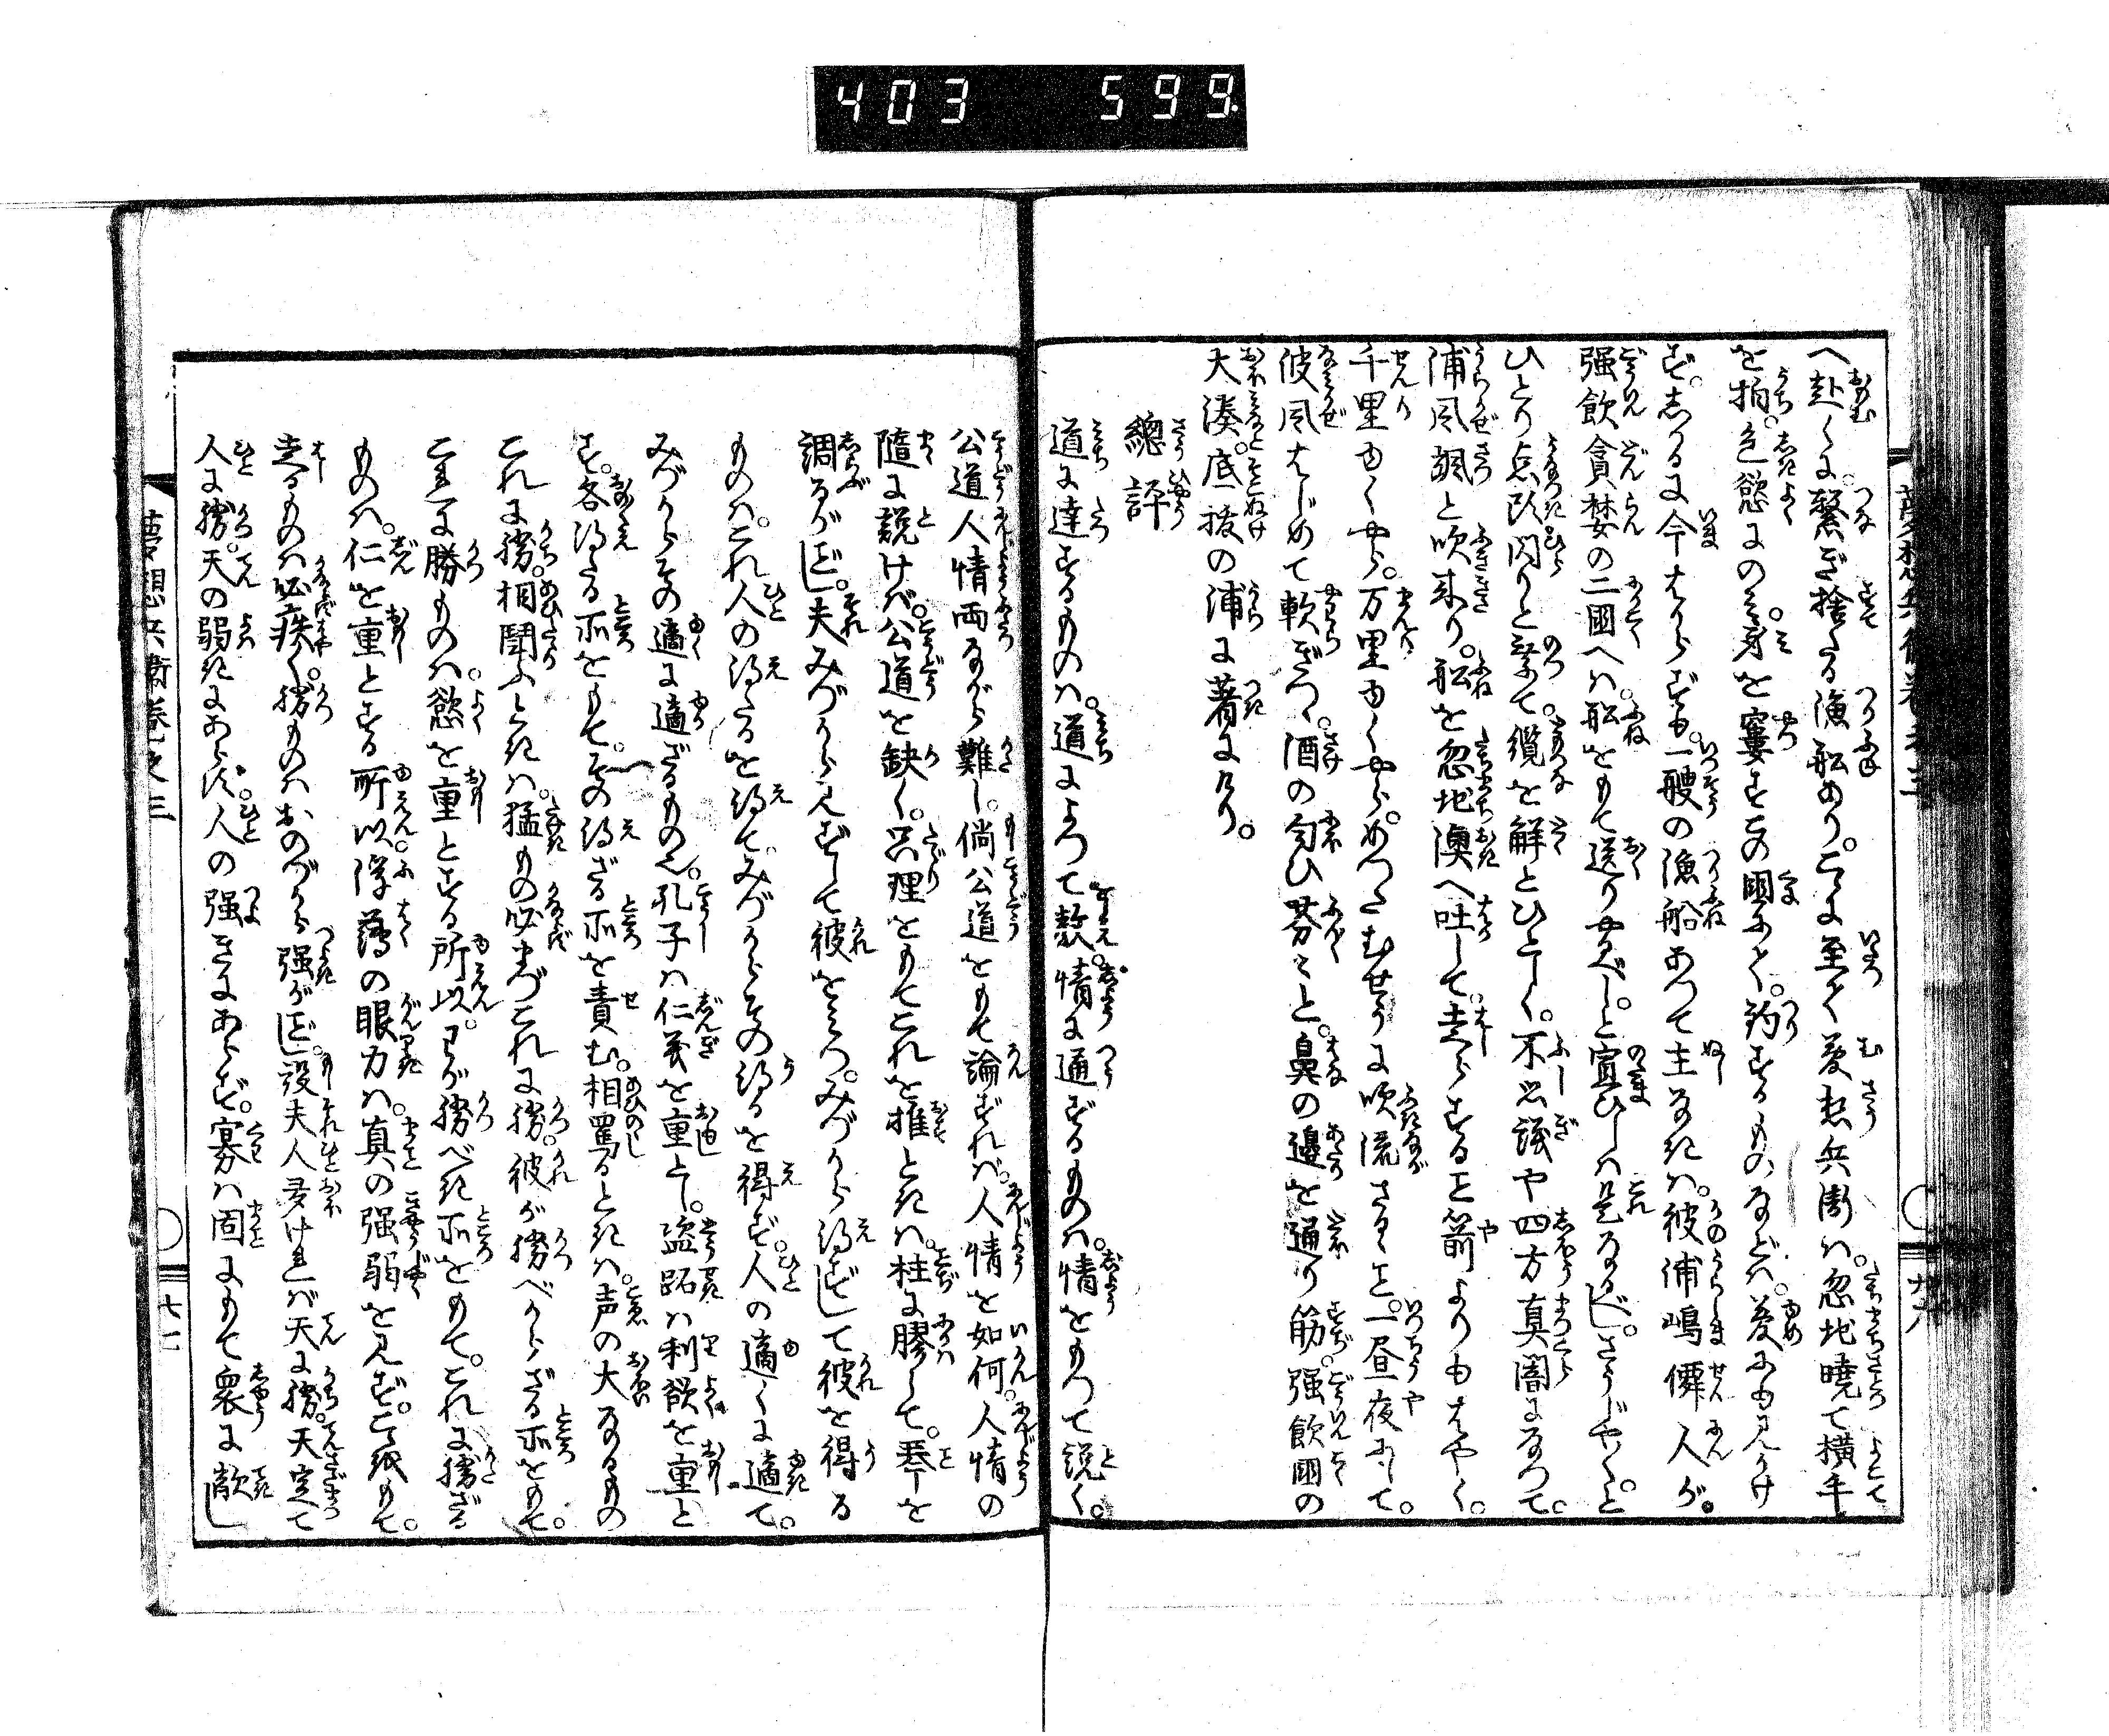 403 599
へ赴くに。繋ぎ捨たる漁船あり。こゝに至て夢想兵衛は。忽地暁て横手
を拍。色慾にのみ身を窶すこの国にて。釣するものなどは。夢にも見かけ
ず。しかるに今はからずも。一艘の漁船あつて主なきは。彼浦嶋僊人が。
强飲貪婪の二國へは。船をもて送りやるべし。と宣ひしは是なるべし。さうじや〳〵。と
ひとり点頭閃りと乗て。纜を解とひとしく。不思議や四方真闇になつて。
浦風颯と吹来り。船を忽地澳へ吐して。走らすること箭よりもはやく。
千里ゆくやら。万里ゆくやら。めつたむせうに吹流さるゝこと。一昼一夜にして。
波風はじめて軟ぎつゝ。酒の匂ひ芬々と。鼻の邊を通り筋。强飲國の
大湊。底拔の浦に著にけり。
總評
道に達するものは。道によつて教。情に通ずるものは。情をもつて説く。
公道人情両ながら難し。倘公道をもて論ずれば。人情を如何。人情の
隨に説けば。公道を缺く。只理をもてこれを推ときは。柱に膠して。琴を
調るがごとし。夫みづから見ずして彼を見つ。みづから得ずして彼を得る
ものは。これ人の得たるを得て。みづからその得るを得ず。人の適くに適て。
みづからその適に適ざるもの也。孔子は仁義を重とし。盗跖は利欲を重と
す。各得たる所をもて。その得ざる所を責む。相罵るときは。声の大なるもの
これに勝。相鬪ふときは。猛もの必まづこれに勝。彼が勝べからざる所をもて。
これに勝ものは。慾を重とする所以。わが勝べき所をもて。これに勝ざる
ものは。仁を重とする所以。浮薄の眼力は。真の强弱を見ず。こゝをもて。
走るものは必疾く。勝ものはおのづから强がごとし。設夫人多ければ天に勝。天定て
人に勝。天の弱きにあらず。人の强きにあらず。寡は固にもて衆に敵し
夢想兵衛巻之三